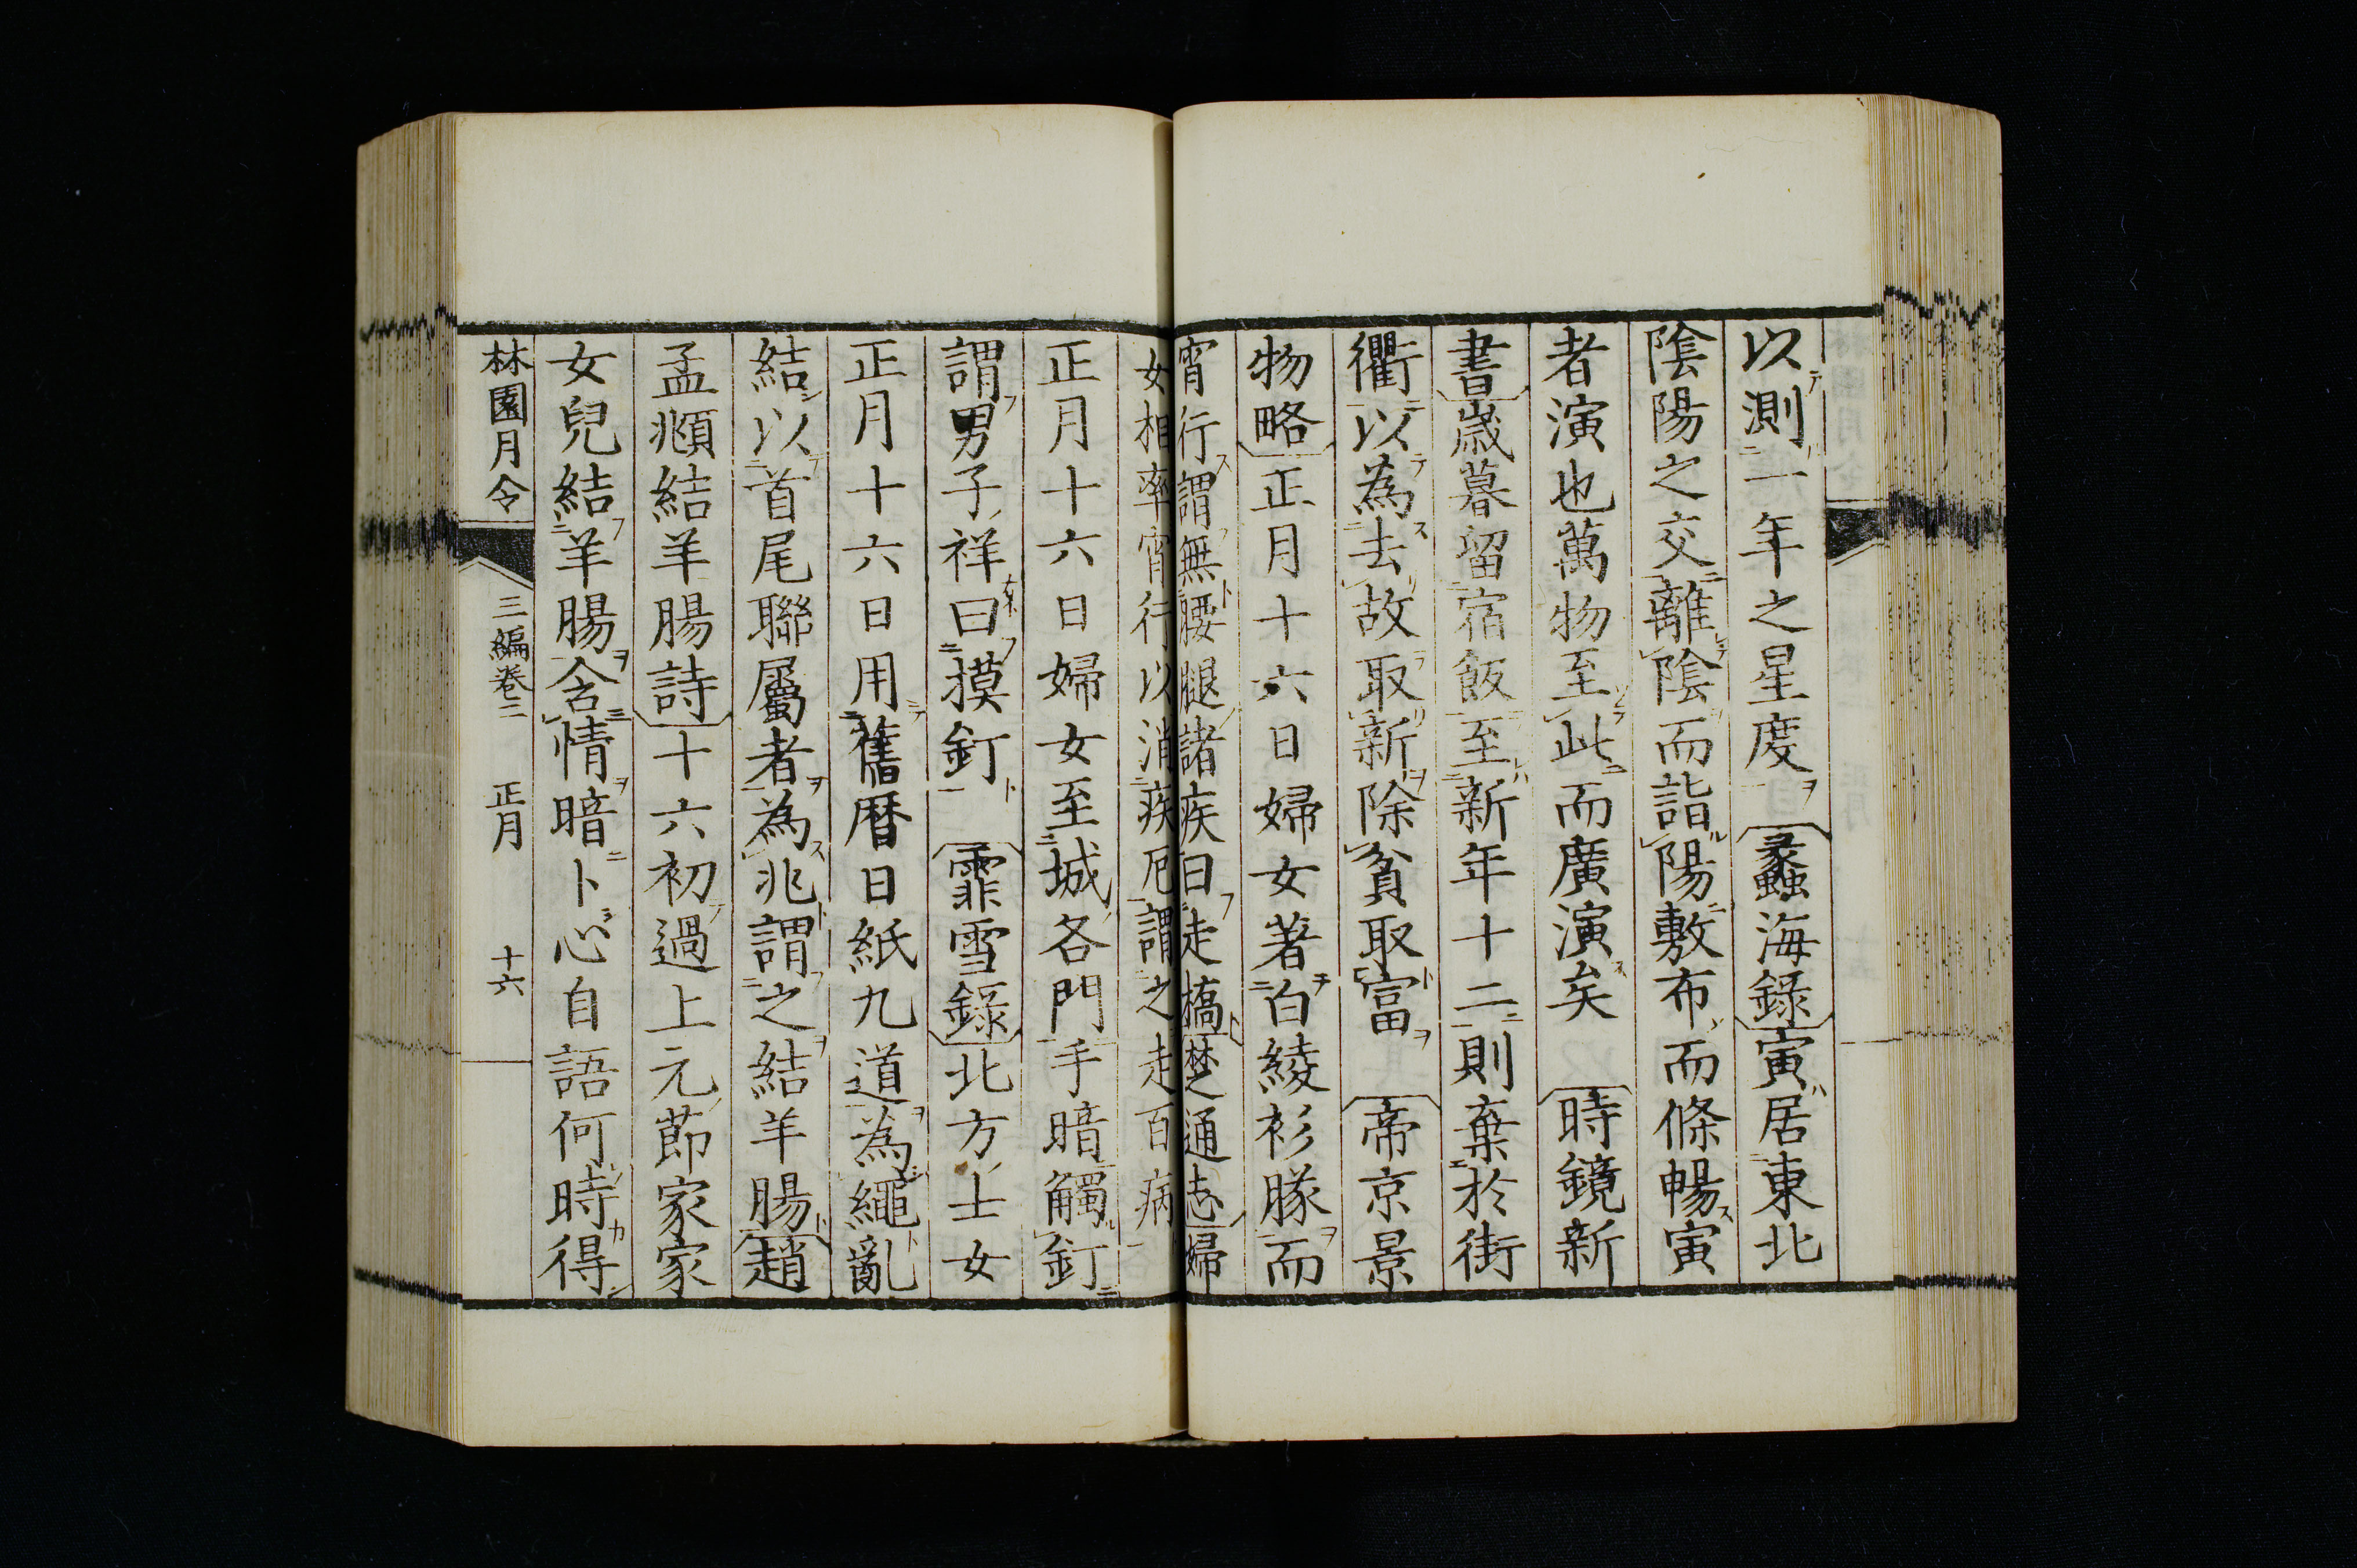 以測一年之星度 蠡海錄寅居東北
陰陽之交離陰而詣陽敷布而條暢寅
者演也萬物至此而廣演矣 時鏡新
書歲暮留宿飯至新年十二則棄於街
衢以為去故取新除貧取富 帝京景
物略正月十六日婦女著白綾衫隊而
宵行謂無腰腿諸疾曰走橋楚通志婦
女相率宵行以消疾厄謂之走百病
正月十六日婦女至城各門手暗觸釘
謂男子祥曰摸釘 霏雪錄北方士女
正月十六日用舊曆日紙九道為繩亂
結以首尾聯屬者為兆謂之結羊腸趙
孟頫結羊腸詩十六初過上元節家家
女兒結羊腸含情暗卜心自語何時得
林園月令 三編卷二 正月 十六